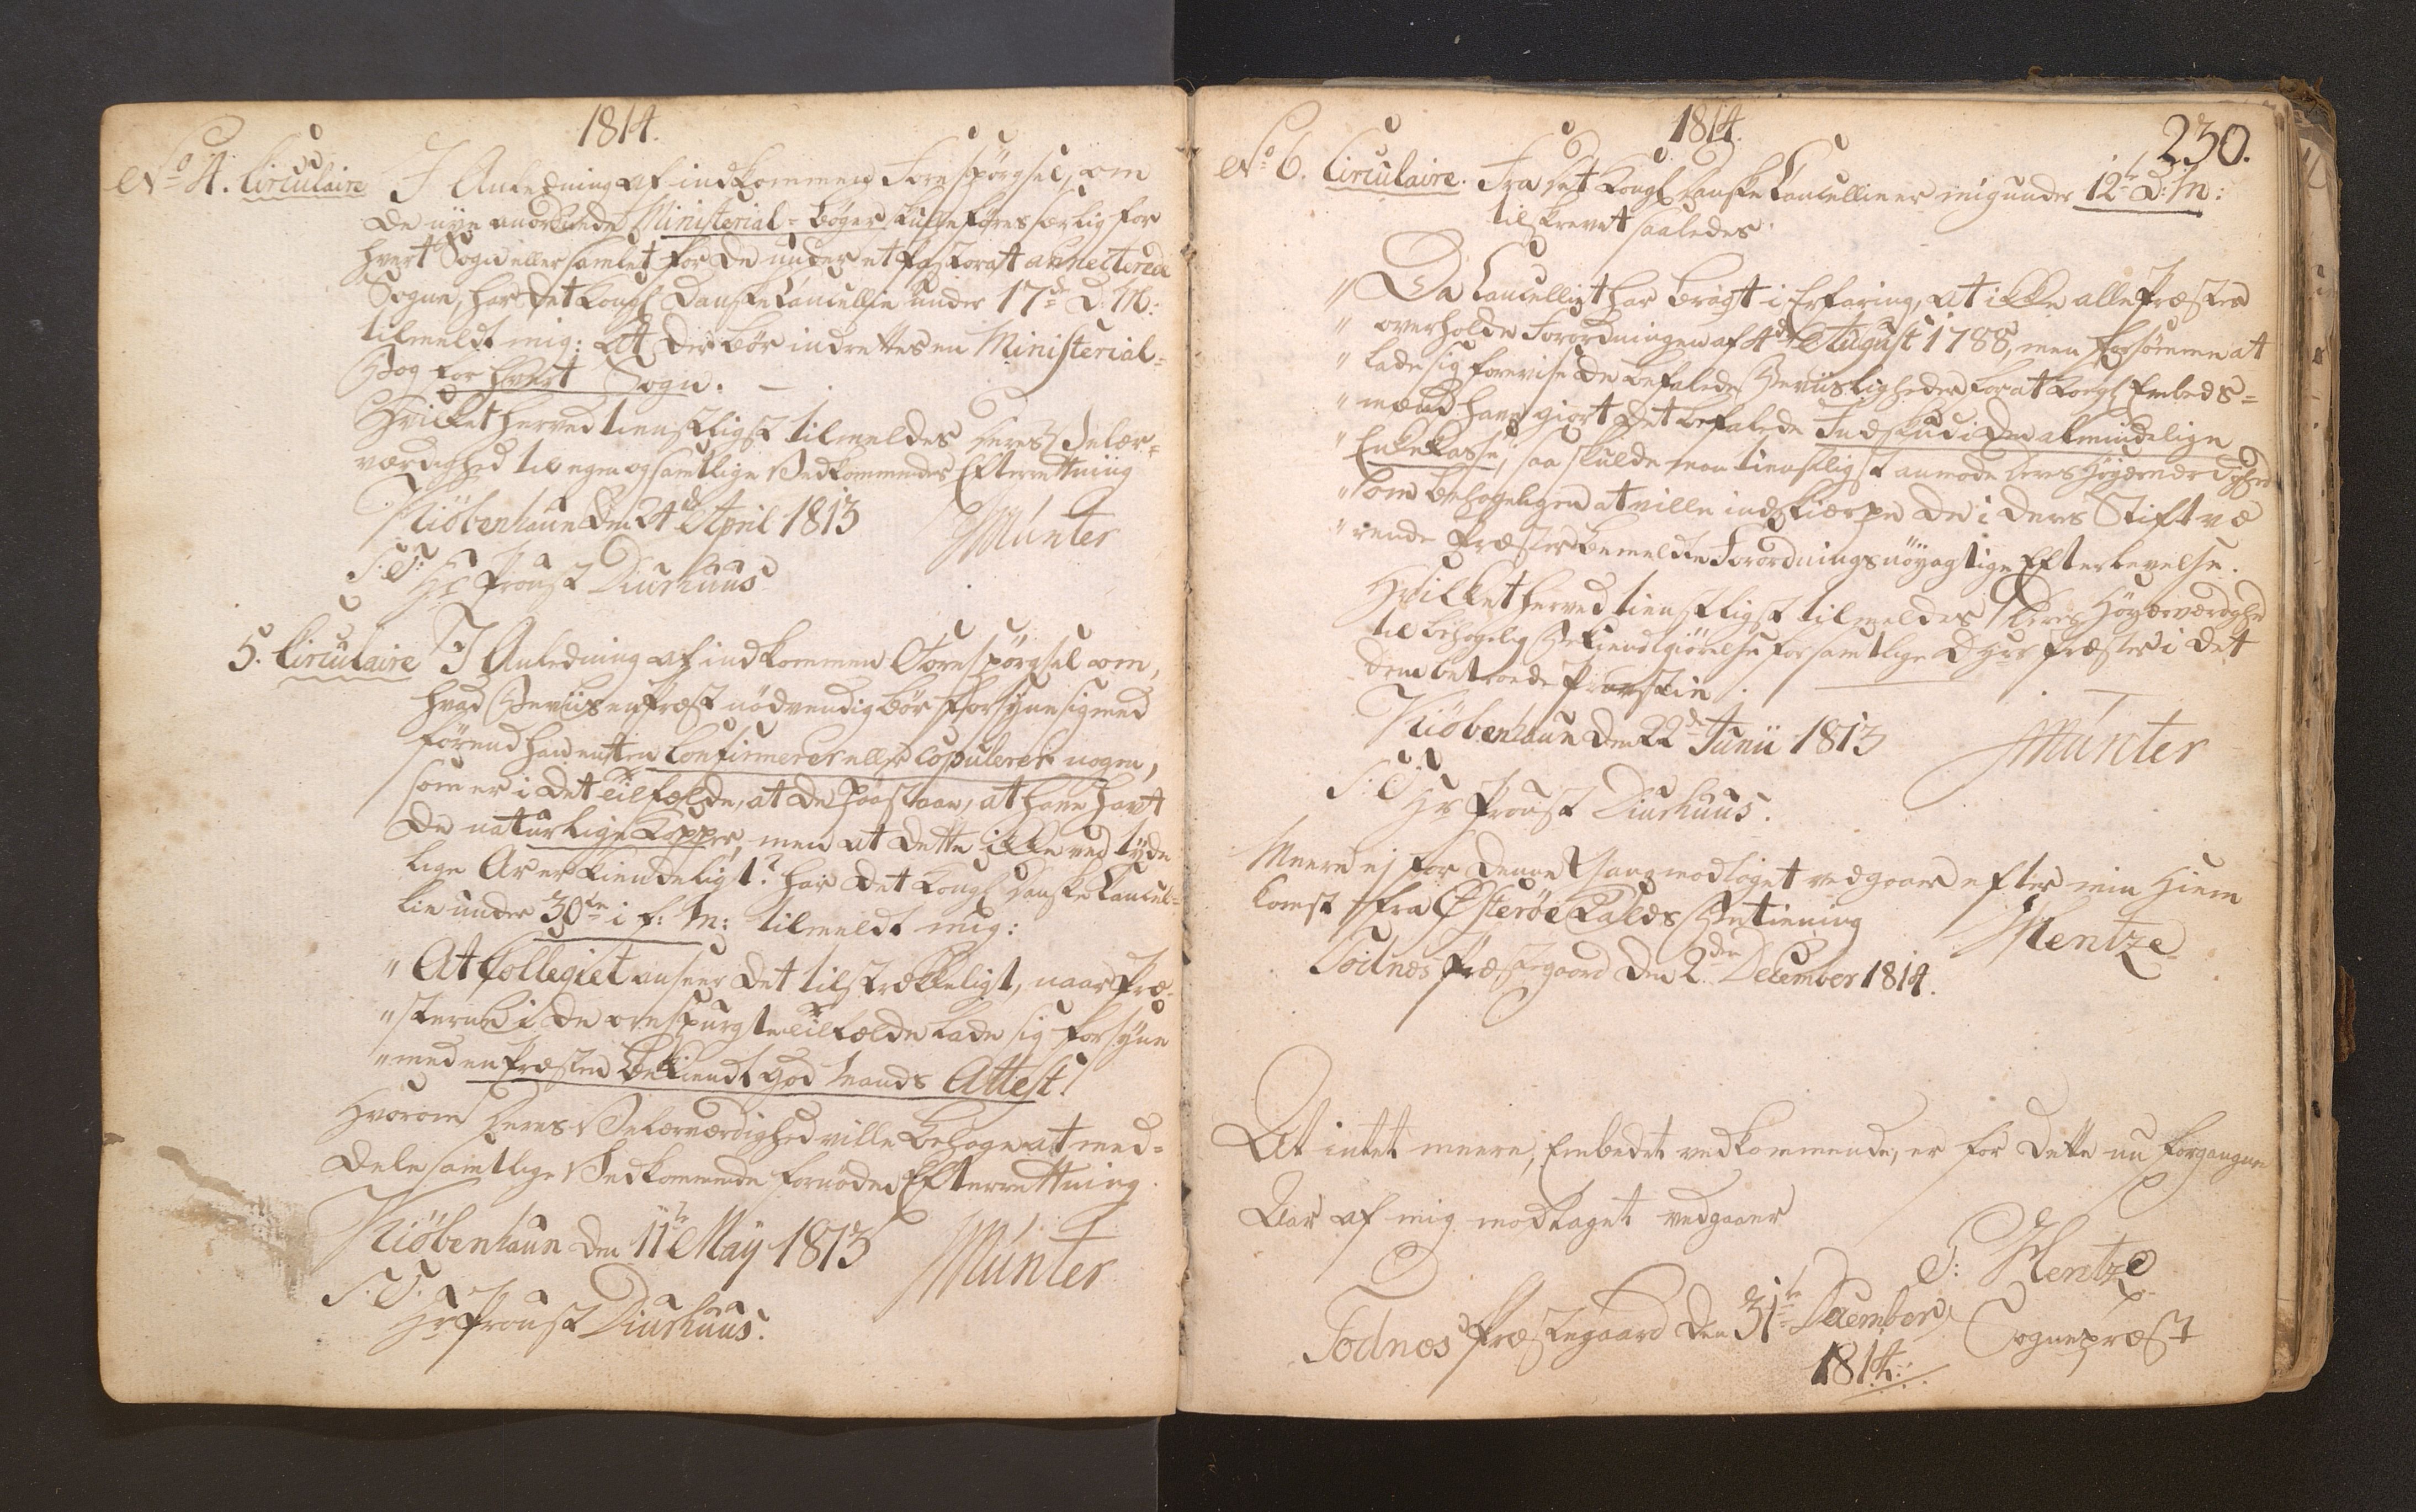 1814.
No 4. Circulaire I Anledning af indkommen Forespörgsel, om
de nÿe anordnede Ministerial-Bøger skulle føres særlig for
hvert Sogn eller samlet for de under et Pastorat annecterede
Sogne, har det Kongl Danske Cancellie under 17de d. M:
tilmeldt mig: At der bör indrettes en Ministerial-
Bog for hvert Sogn. —
Hvilket herved tienstligst tilmeldes Deres Velær-
værdighed til egen og samtlige Vedkommendes Efterretning
Kiöbenhaun den 24de April 1813
Münter
S. T.
Hr Proust Diurhuus
5. Circulaire I Anledning af indkommen Forespörgsel om,
hvad Beviis en Præst nödvendig bör forsÿne sig med
förend han enten Confirmerer eller Copulerer nogen,
som er i det Tilfælde, at de paastaae, at have havt
de naturlige Kopper, men at dette ikke ved tÿde
lige Ar er kiendeligt? har det Kongl Danske Cancel-
lie under 30te i f: M: tilmeldt mig:
" At Collegiet anseer det tilstrækkeligt, naar Præ-
" sterne i de omspurgte Tilfælde lade sig forsÿne
" med en Præsten bekiendt god Mands Attest.
Hvorom Deres Velærværdighed ville behage at med-
dele samtlige Vedkommende fornöden Efterretning.
Kiöbenhaun den 11te Maÿ 1813
Münter
S. T.
Hr Proust Diurhuus.
1814.
230.
No 6. Circulaire. Fra det Kongl Danske Cancellie er mig under 12te d: M:
tilskrevet saaledes.
" Da Cancelliet har bragt i Erfaring, at ikke alle Præster
" overholde Forordningen af 4de August 1788, men forsömme at
" lade sig forevise de befalede Beviisligheder for at Kongl Embeds-
" mænd have giort det befalede Indskud i den almindelige
" Enkekasse, saa skulde man tienstligst anmode Deres Höÿærværdighed
" om behageligen at ville indskiærpe de i Deres Stift væ
" rende Præster bemeldte Forordnings nöÿagtige Efterlevelse.
Hvilket herved tienstligst tilmeldes Deres Höÿærværdighed
til behagelig Bekiendtgiörelse for samtlige D Hrr Præster i det
dem betroede Provstie.
Kiöbenhaun den 22de Junii 1813
Münter
S. T.
Hr Proust Diurhuus.
Meere ej for denne Gang modtaget vedgaaer efter min Hiem
komst fra Österöe Kalds Betiening
Hentze
Todnæs Præstegaard den 2den December 1814.
At intet meere, Embedet vedkommende, er for dette nu forgangne
Aar af mig modtaget vedgaaer
P: Hentze
Todnæs Præstegaard den 31te December
Sognepræst
1814.